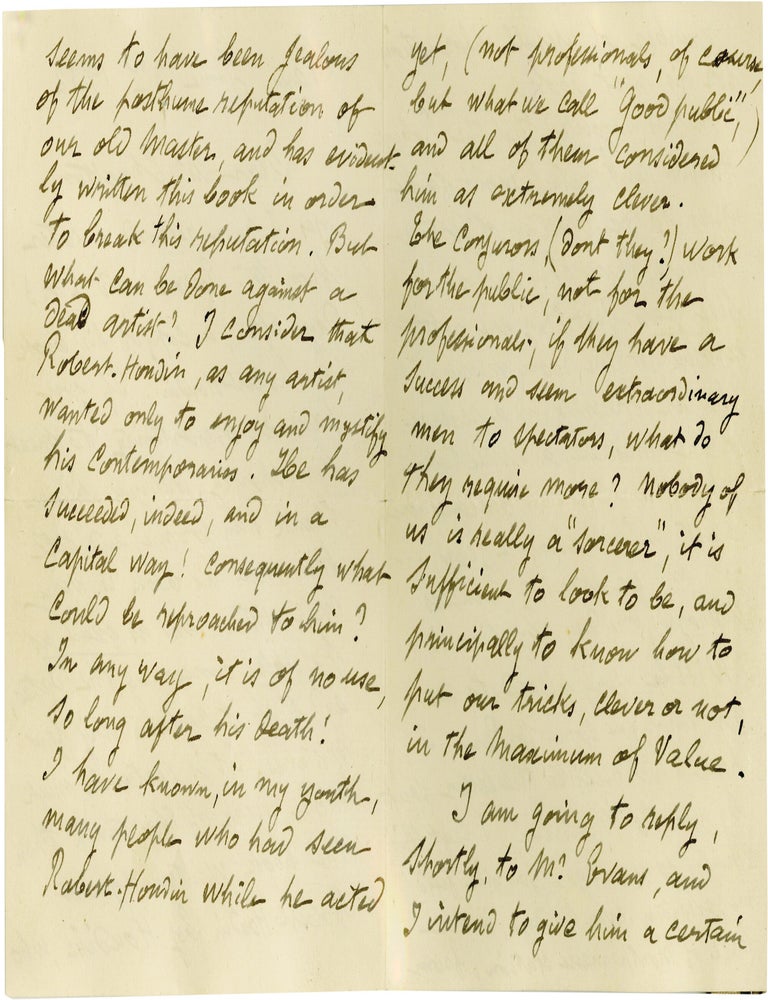 seems to have been jealous
of the posthume reputation of
our old Master, and has evident-
ly written this book in order
to break this reputation. But
what can be done against a
dead artist? I consider that
Robert-Houdin, as any artist,
wanted only to enjoy and mystify
his Contemporaries. He has
succeeded, indeed, and in a
Capital way! Consequently what
could be reproached to him?
In any way, it is of no use,
so long after his death!
I have known, in my youth,
many people who had seen
Robert-Houdin while he acted
yet, (not professionals, of course,
but what we call "Good public",)
and all of them considered
him as extremely clever.
The Conjurors, (dont they?) work
for the public, not for the
professionals, if they have a
success and seem extraordinary
men to spectators, what do
they require more? Nobody of
us is really a "sorcerer", it is
sufficient to look to be, and
principally to know how to
put our tricks, clever or not,
in the Maximum of Value.
I am going to reply,
shortly, to Mr Evans, and
I intend to give him a certain